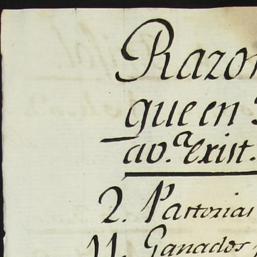 Razon
que en
av.ª exist.
2. Partorias
11. Ganados